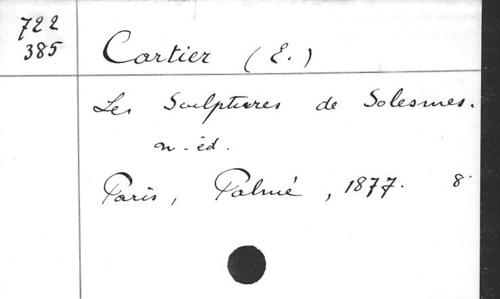 722
385
Cartier (E.)
Les Sculptures de Solesmes.
n. éd.
Paris, Palmé, 1877. 8°